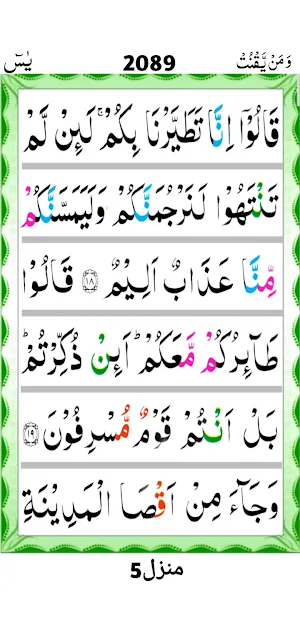 وَمَنْ يَّقْنُتْ 2089 يٰسٓ
قَالُوْۤا اِنَّا تَطَيَّرْنَا بِكُمْ ۚ لَئِنْ لَّمْ
تَنْتَهُوْا لَنَرْجُمَنَّكُمْ وَلَيَمَسَّنَّكُمْ
مِّنَّا عَذَابٌ اَلِيْمٌ ۝۱۸ قَالُوْا
طَآئِرُكُمْ مَّعَكُمْ ؕ اَئِنْ ذُكِّرْتُمْ ؕ
بَلْ اَنْتُمْ قَوْمٌ مُّسْرِفُوْنَ ۝۱۹
وَجَآءَ مِنْ اَقْصَا الْمَدِيْنَةِ
منزل5